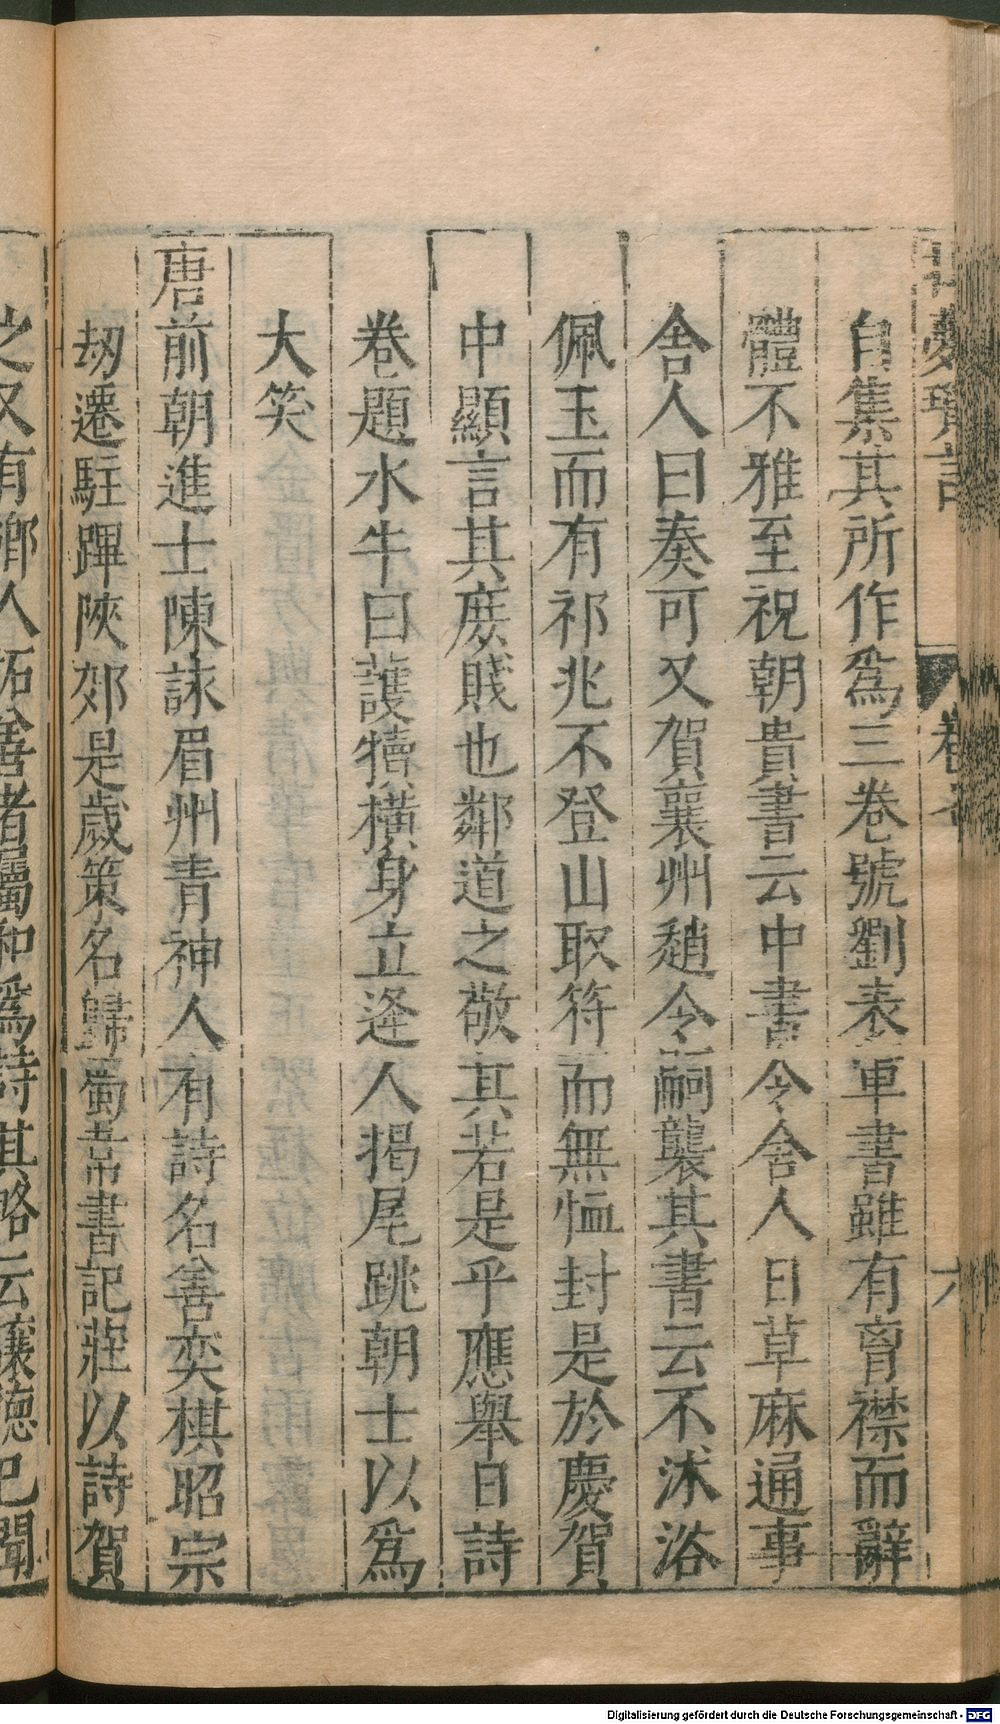 夢瑣言
卷
六
自集其所作爲三卷號劉表軍書雖有胷襟而辭
體不雅至祝朝貴書云中書令舍人曰草麻通事
舍人曰奏可又賀襄州趙令嗣襲其書云不沐浴
佩玉而有祁兆不登山取符而無恤封是於慶賀
中顯言其庶賤也鄰道之敬其若是乎應舉日詩
卷題水牛曰護犢橫身立逢人揭尾跳朝士以爲
大笑
唐前朝進士陳詠眉州青神人有詩名善奕棋昭宗
刼遷駐蹕陜郊是歲策名歸蜀韋書記莊以詩賀
之又有鄉人拓善者屬和爲詩其略云讓德已聞
Digitalisierung gefördert durch die Deutsche Forschungsgemeinschaft - DFG